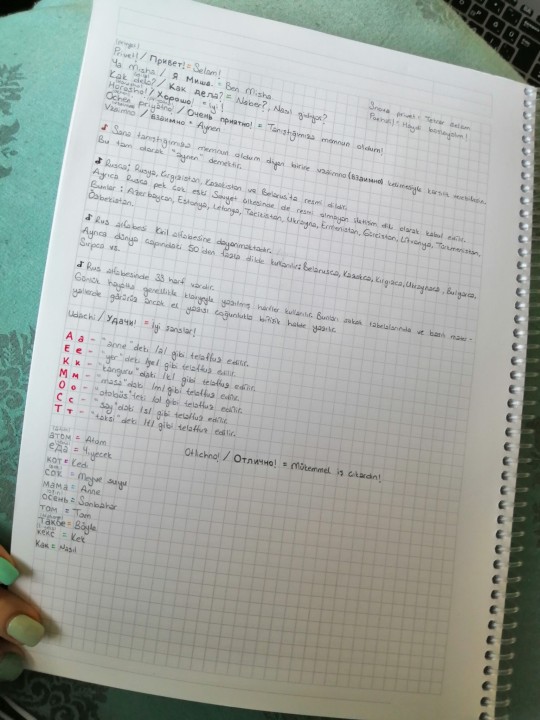 Privet! / Привет! = Selam!
Ya Misha. / Я Миша. = Ben Misha.
Kak dela? / Как дела? = Naber?, Nasıl gidiyor?
Horoşho! / Хорошо! = İyi!
Ochen priyatno! / Очень приятно! = Tanıştığımıza memnun oldum!
Vzaimno / Взаимно = Aynen
Snova privet = Tekrar selam
Poehali! = Haydi başlayalım!
Sana tanıştığımıza memnun oldum diyen birine vzaimno (Взаимно) kelimesiyle karşılık verebilirsin.
Bu tam olarak "aynen" demektir.
Rusça; Rusya, Kırgızistan, Kazakistan ve Belarus'ta resmi dildir.
Ayrıca Rusça pek çok eski Sovyet ülkesinde de resmi olmayan iletişim dili olarak kabul edilir.
Bunlar: Azerbaycan, Estonya, Letonya, Tacikistan, Ukrayna, Ermenistan, Gürcistan, Litvanya, Türkmenistan,
Özbekistan.
Rus alfabesi Kiril alfabesine dayanmaktadır.
Ayrıca dünya çapındaki 50'den fazla dilde kullanılır: Belarusça, Kazakça, Kırgızca, Ukraynaca, Bulgarca,
Sırpça vs.
Rus alfabesinde 33 harf vardır.
Günlük hayatta genellikle klavyeyle yazılmış harfler kullanılır. Bunları sokak tabelalarında ve basılı mater-
yallerde görürüz ancak el yazısı çoğunlukla bitişik halde yazılır.
Udachi / Удачи! = İyi şanslar!
А а - "anne" deki /a/ gibi telaffuz edilir.
Е е - "yer" deki /ye/ gibi telaffuz edilir.
К к - "kanguru" daki /k/ gibi telaffuz edilir.
М м - "masa" daki /m/ gibi telaffuz edilir.
О о - "otobüs" teki /o/ gibi telaffuz edilir.
С с - "say" daki /s/ gibi telaffuz edilir.
Т т - "taksi" deki /t/ gibi telaffuz edilir.
атом = Atom
еда = Yiyecek
Otlichno! / Отлично! = Mükemmel iş çıkardın!
кот = Kedi
сок = Meyve suyu
мама = Anne
осень = Sonbahar
том = Tom
такое = Böyle
кекс = Kek
как = Nasıl